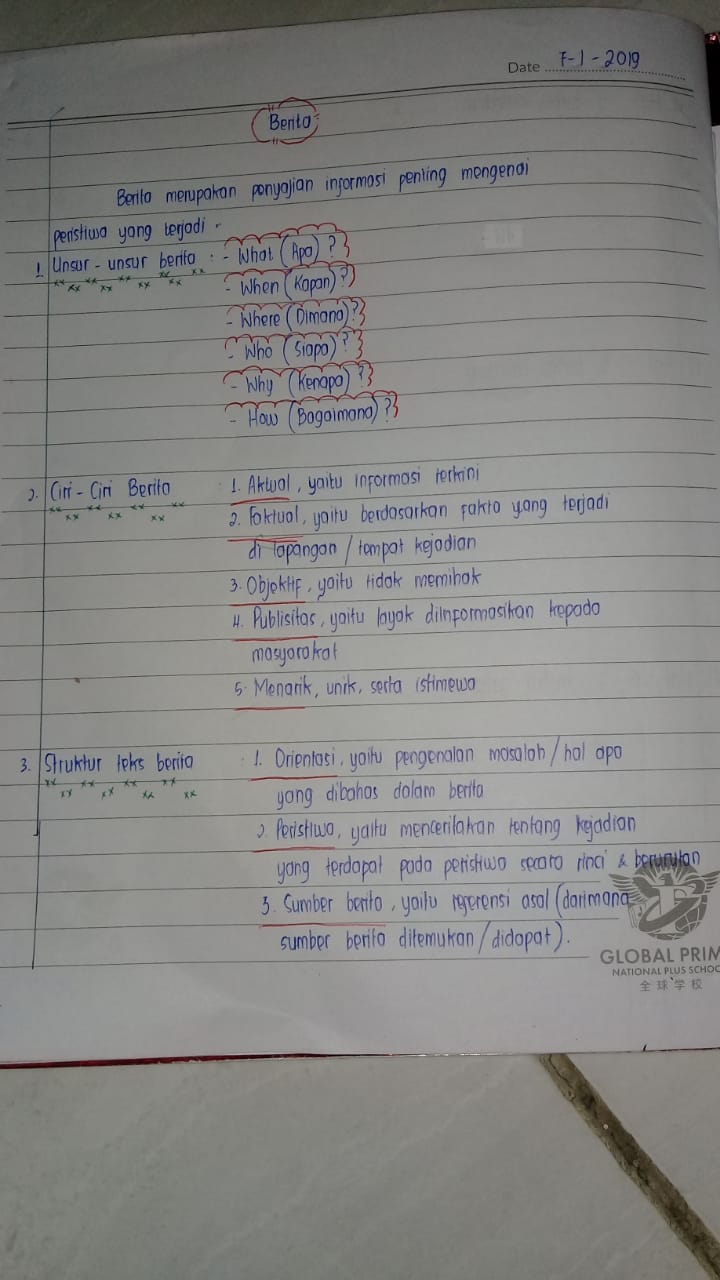 Date 7-1-2019
"Berita"
Berita merupakan penyajian informasi penting mengenai
peristiwa yang terjadi.
1. Unsur-unsur berita : - What (Apa)?
- When (Kapan)?
- Where (Dimana)?
- Who (Siapa)?
- Why (Kenapa)?
- How (Bagaimana)?
2. Ciri-Ciri Berita : 1. Aktual, yaitu informasi terkini
2. Faktual, yaitu berdasarkan fakta yang terjadi
di lapangan / tempat kejadian
3. Objektif, yaitu tidak memihak
4. Publisitas, yaitu layak diinformasikan kepada
masyarakat
5. Menarik, unik, serta istimewa
3. Struktur teks berita : 1. Orientasi, yaitu pengenalan masalah/hal apa
yang dibahas dalam berita
2. Peristiwa, yaitu menceritakan tentang kejadian
yang terdapat pada peristiwa secara rinci & berurutan
3. Sumber berita, yaitu referensi asal (darimana
sumber berita ditemukan/didapat).
GLOBAL PRIM
NATIONAL PLUS SCHOO
全球学校